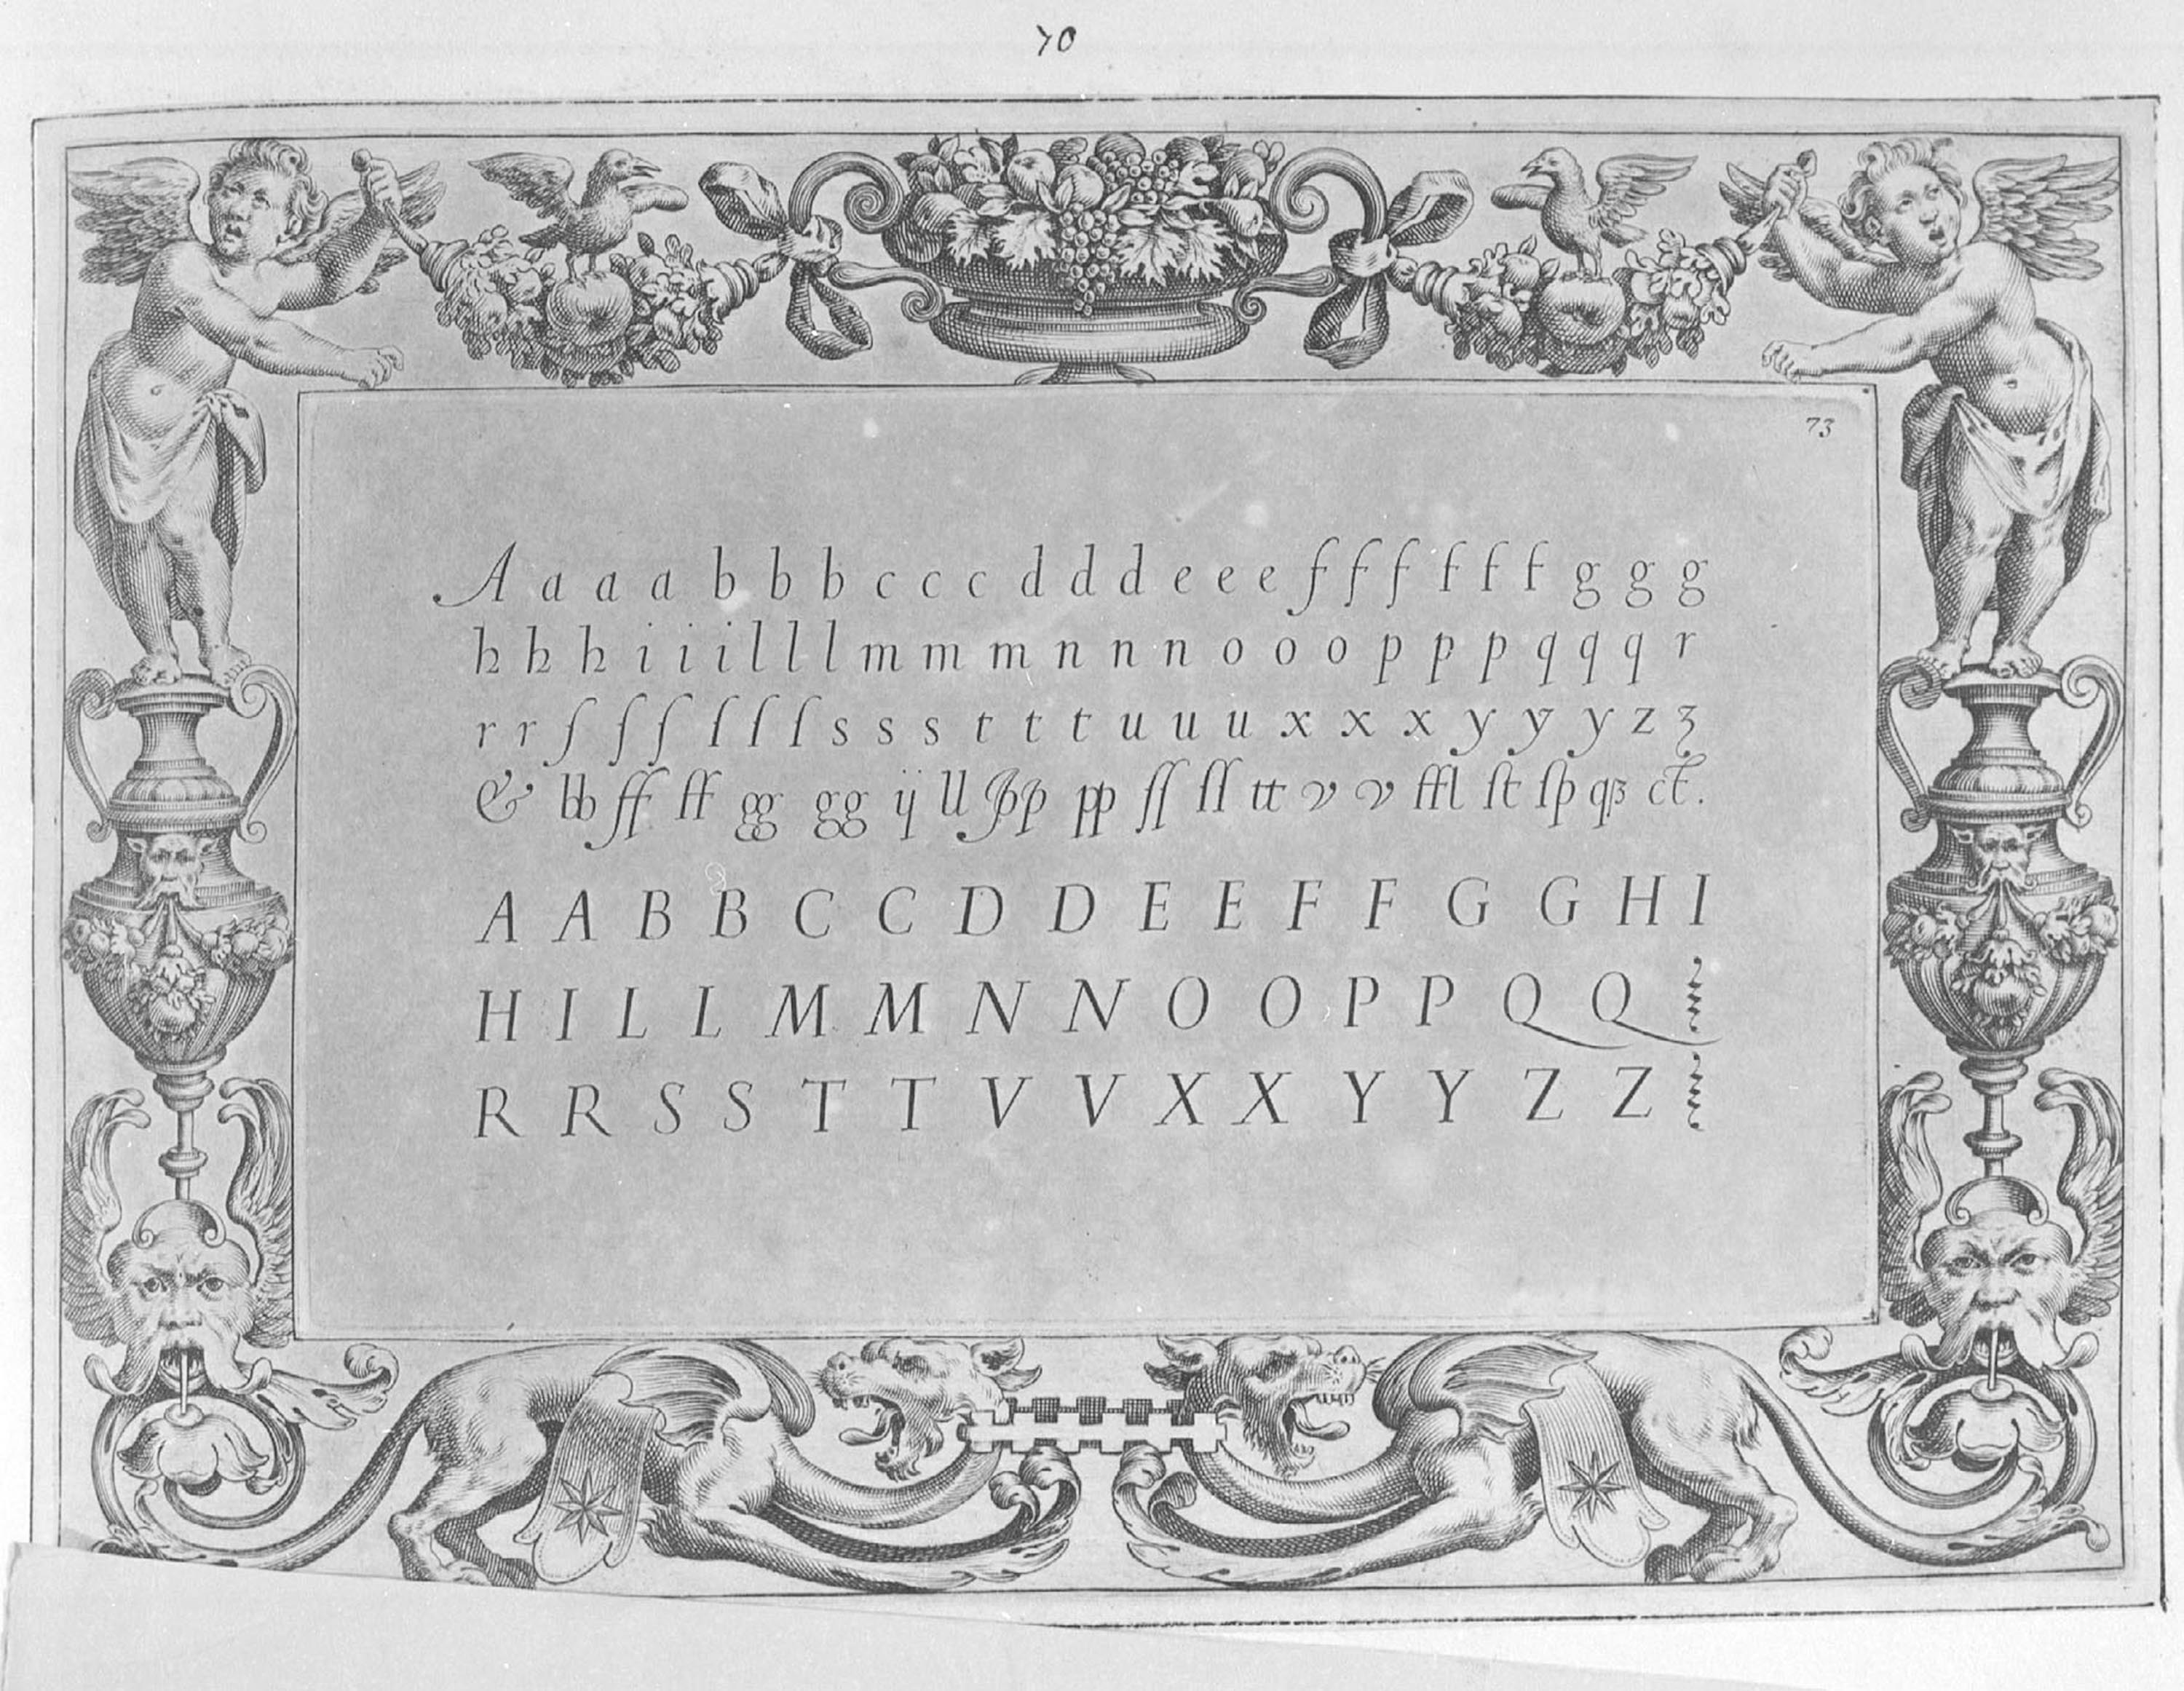 70
73
A a a a b b b c c c d d d e e e f f f f f f g g g
h h h i i i l l l m m m n n n o o o p p p q q q r
r r ſ ſ ſ ſ ſ ſ s s s t t t u u u x x x y y y z ʒ
& bb ff ff gg gg ij ll pp pp ſſ ſſ tt v v ffl ſt ſp qꝫ ct.
A A B B C C D D E E F F G G H I
H I L L M M N N O O P P Q Q
R R S S T T V V X X Y Y Z Z